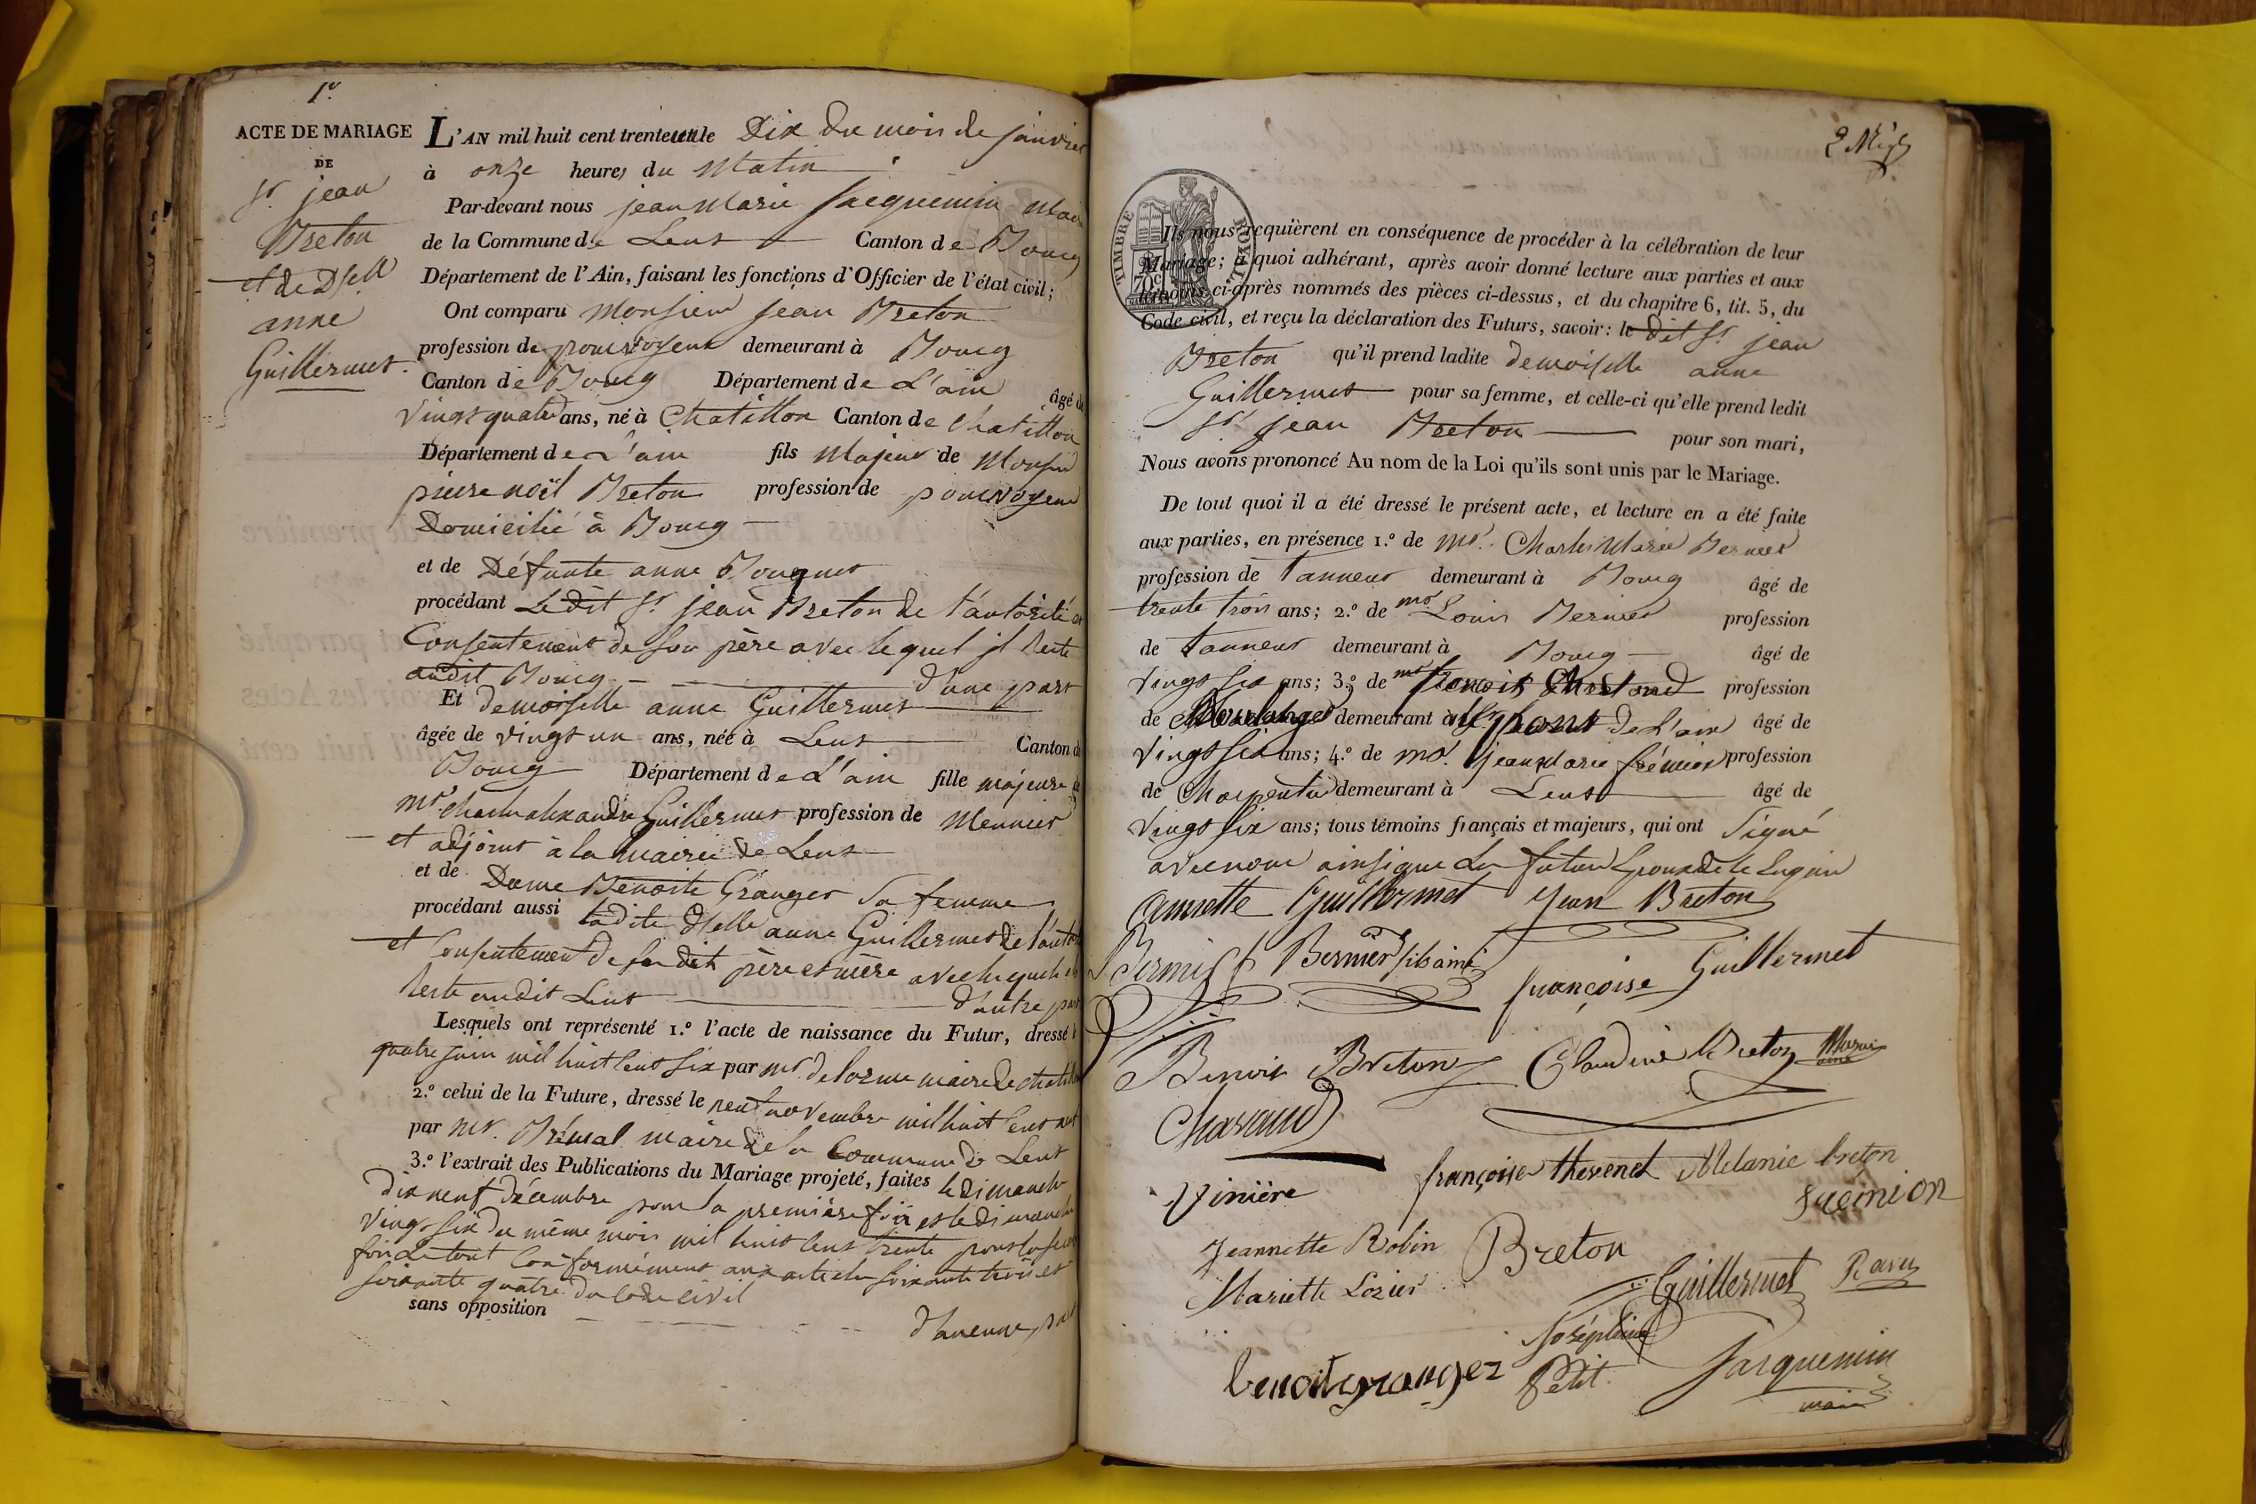 1er
ACTE DE MARIAGE
DE
Sr. jean
Breton
et de Dselle
anne
Guillermet.
L'AN mil huit cent trente un le Dix du mois de janvier
à onze heures du Matin
Par-devant nous jean Marie Jacquemin Maire
de la Commune de Lent Canton de Bourg
Département de l'Ain, faisant les fonctions d'Officier de l'état civil;
Ont comparu Monsieur jean Breton
profession de pourvoyeur demeurant à Bourg
Canton de Bourg Département de L'ain âgé de
vingt quatre ans, né à Chatillon Canton de Chatillon
Département de L'ain fils Majeur de Monsieur
pierre noël Breton profession de pourvoyeur
Domicilié à Bourg
et de Défunte anne
procédant Le dit Sr. jean Breton de l'autorité et
Consentement de son père avec lequel il Reste
audit Bourg d'une part
Et demoiselle anne Guillermet
âgée de vingt un ans, née à Lent Canton de
Bourg Département de L'ain fille majeure de
Mr. Guillermet profession de Meunier
et adjoint à la Mairie de Lent
et de Dame Benoite Granger Sa femme
procédant aussi ladite Dselle anne Guillermet de l'autorité
et Consentement de ses dits père et mère avec lesquels elle
Reste audit Lent d'autre part
Lesquels ont représenté 1.º l'acte de naissance du Futur, dressé le
quatre juin mil huit cent six par Mr. delorme maire de chatillon
2.º celui de la Future, dressé le neuf novembre mil huit cent neuf
par Mr. maire de la Commune de Lent
3.º l'extrait des Publications du Mariage projeté, faites le Dimanche
Dix neuf décembre pour la première fois et le Dimanche
vingt six du même mois mil huit cent trente pour la seconde
fois Le tout Conformément aux articles soixante trois et
soixante quatre du Code Civil
sans opposition d'aucune part
TIMBRE ROYAL
70c
Ils nous requièrent en conséquence de procéder à la célébration de leur
Mariage; à quoi adhérant, après avoir donné lecture aux parties et aux
témoins ci-après nommés des pièces ci-dessus, et du chapitre 6, tit. 5, du
Code civil, et reçu la déclaration des Futurs, savoir: le dit Sr. jean
Breton qu'il prend ladite demoiselle anne
Guillermet pour sa femme, et celle-ci qu'elle prend ledit
Sr. jean Breton pour son mari,
Nous avons prononcé Au nom de la Loi qu'ils sont unis par le Mariage.
De tout quoi il a été dressé le présent acte, et lecture en a été faite
aux parties, en présence 1.º de Mr. Charles Marie Bernier
profession de Tanneur demeurant à Bourg âgé de
trente trois ans; 2.º de Mr. Louis Bernier profession
de Tanneur demeurant à Bourg âgé de
vingt six ans; 3.º de Mr. profession
de Boulanger demeurant à pont de L'ain âgé de
vingt six ans; 4.º de Mr. jean Marie frémion profession
de Charpentier demeurant à Lent âgé de
vingt six ans; tous témoins français et majeurs, qui ont Signé
avec nous ainsi que les futurs
annette Guillermet jean Breton
Bernier fils ainé
françoise Guillermet
Benoit Breton Claudine Breton
Charaud
françoise thevenet Melanie breton
Vinière
Jeannette Robin Breton
Mariette Lozier Guillermet Ravy
Joséphine
Petit
benoit granger Jacquemin
maire